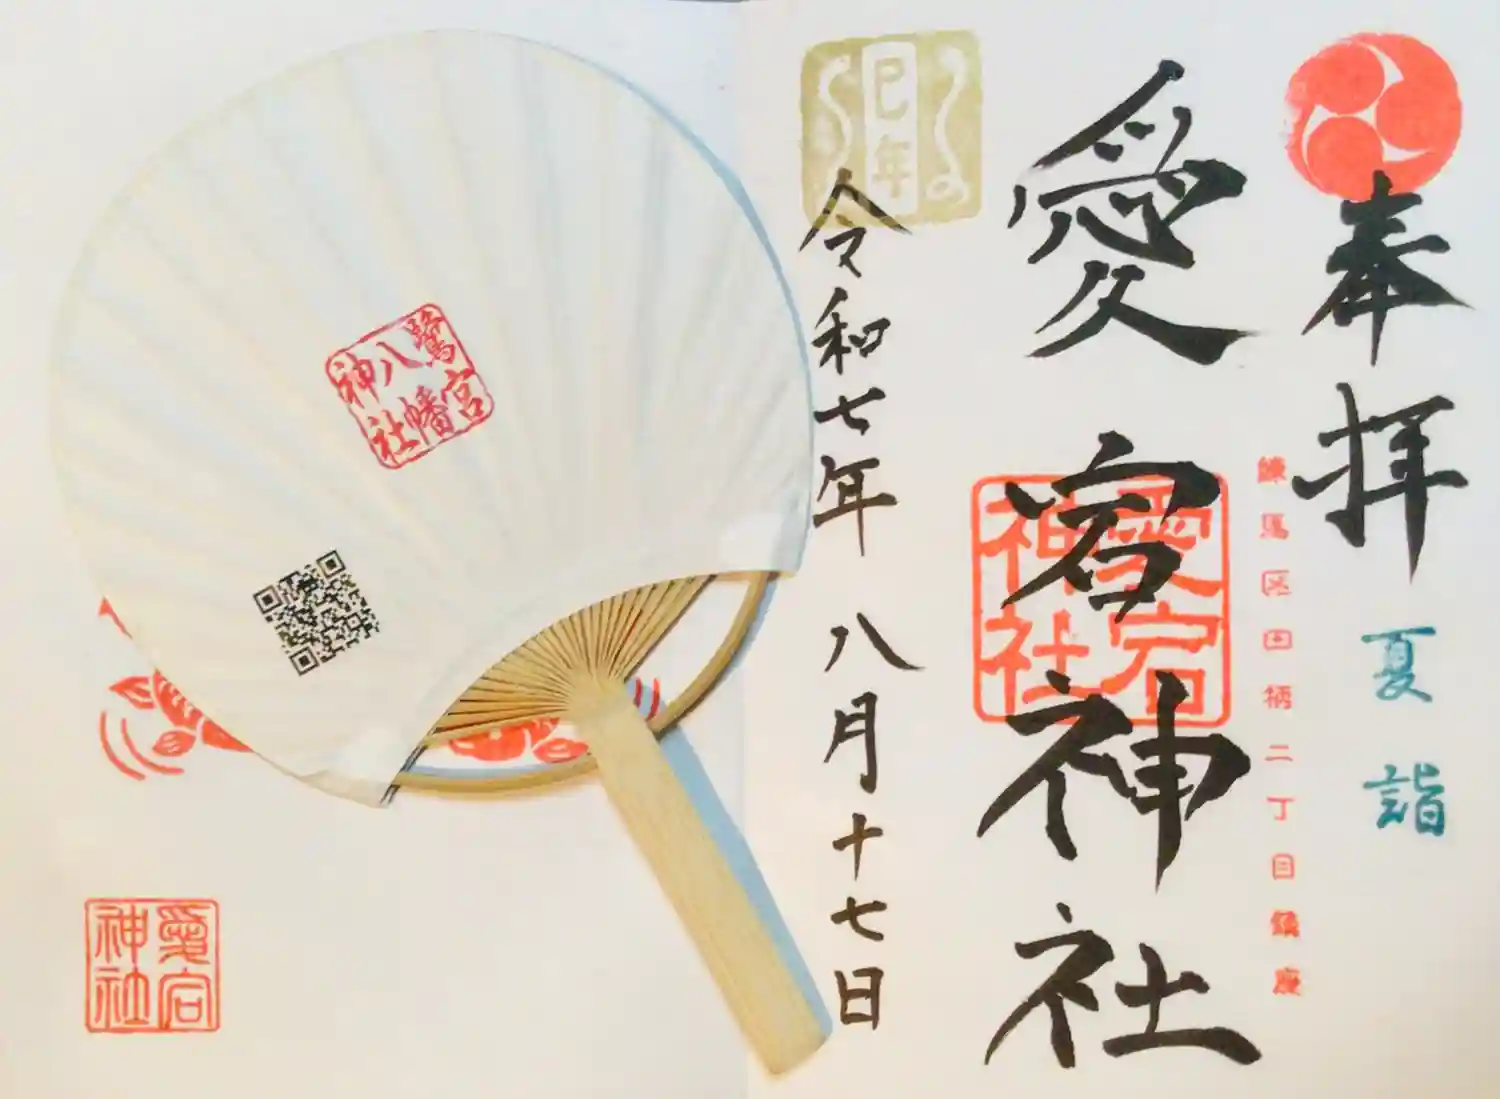 奉拝
夏詣
練馬区田柄二丁目鎮座
愛宕神社
愛宕神社
巳年
令和七年 八月十七日
鷺宮
八幡
神社
愛宕
神社